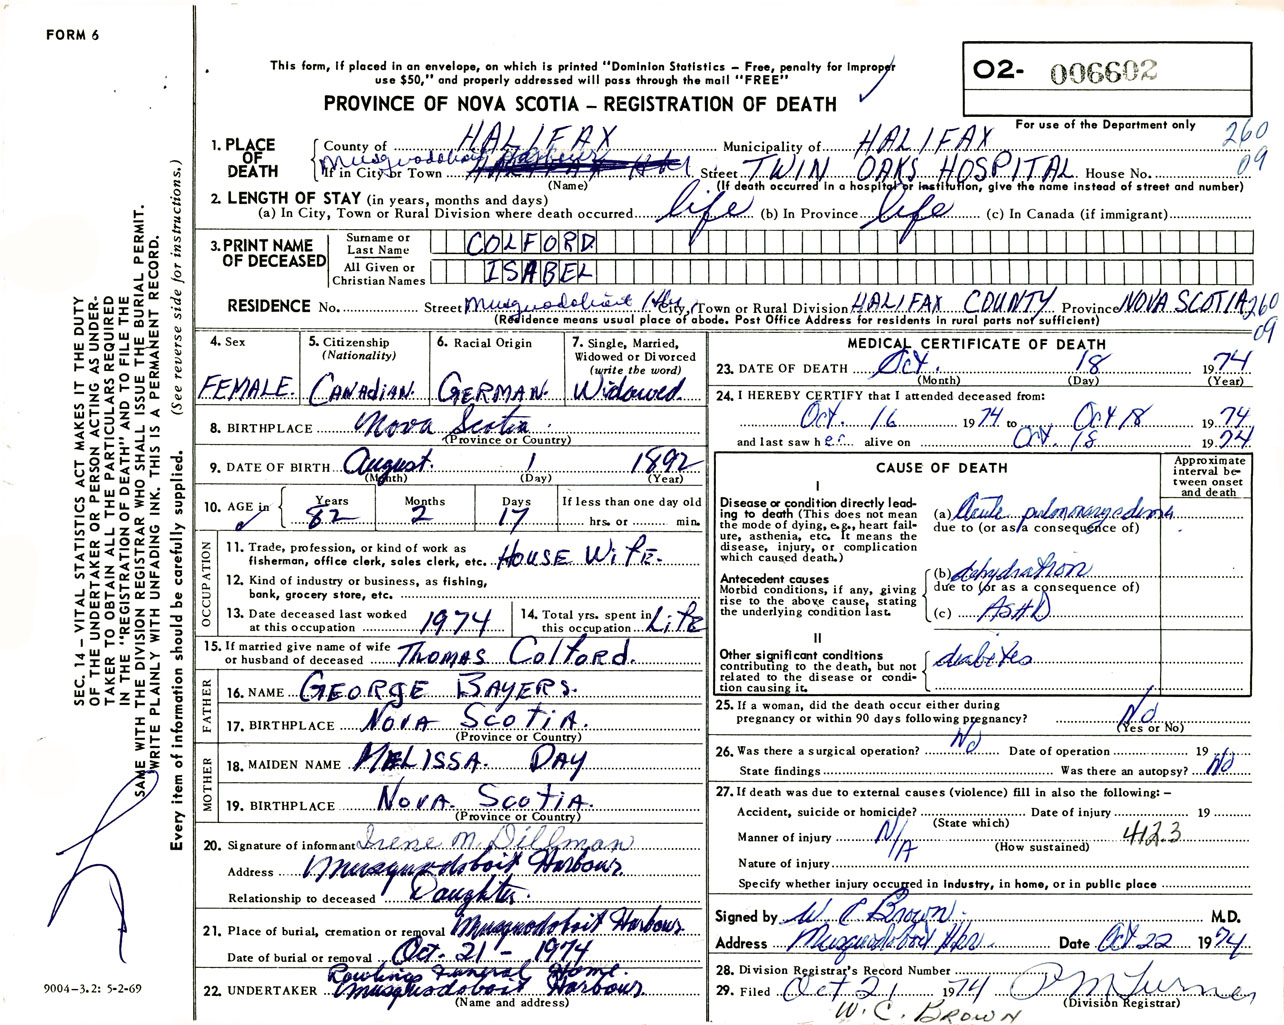 FORM 6
This form, if placed in an envelope, on which is printed "Dominion Statistics – Free, penalty for improper
use $50," and properly addressed will pass through the mail "FREE"
PROVINCE OF NOVA SCOTIA – REGISTRATION OF DEATH
O2- 006602
For use of the Department only
260
09
1. PLACE OF DEATH
County of HALIFAX Municipality of HALIFAX
Musquodoboit Harbour
If in City or Town Street TWIN OAKS HOSPITAL House No.
(Name) (If death occurred in a hospital or institution, give the name instead of street and number)
2. LENGTH OF STAY (in years, months and days)
(a) In City, Town or Rural Division where death occurred life (b) In Province life (c) In Canada (if immigrant)
3. PRINT NAME OF DECEASED
Surname or Last Name COLFORD
All Given or Christian Names ISABEL
RESIDENCE No. Street Musquodoboit Hbr City, Town or Rural Division HALIFAX COUNTY Province NOVA SCOTIA 260
(Residence means usual place of abode. Post Office Address for residents in rural parts not sufficient) 09
4. Sex FEMALE.
5. Citizenship (Nationality) CANADIAN.
6. Racial Origin GERMAN.
7. Single, Married, Widowed or Divorced (write the word) Widowed.
8. BIRTHPLACE Nova Scotia.
(Province or Country)
9. DATE OF BIRTH August. 1 1892
(Month) (Day) (Year)
10. AGE in Years 82 Months 2 Days 17 If less than one day old hrs. or min.
OCCUPATION
11. Trade, profession, or kind of work as
fisherman, office clerk, sales clerk, etc. HOUSE WIFE.
12. Kind of industry or business, as fishing,
bank, grocery store, etc.
13. Date deceased last worked
at this occupation 1974
14. Total yrs. spent in
this occupation LIFE
15. If married give name of wife
or husband of deceased THOMAS COLFORD.
FATHER
16. NAME GEORGE BAYERS.
17. BIRTHPLACE NOVA SCOTIA.
(Province or Country)
MOTHER
18. MAIDEN NAME MELISSA DAY
19. BIRTHPLACE NOVA. SCOTIA.
(Province or Country)
20. Signature of informant Irene M. Dillman
Address Musquodoboit Harbour
Relationship to deceased Daughter.
21. Place of burial, cremation or removal Musquodoboit Harbour
Date of burial or removal Oct. 21 - 1974
Rowlings Funeral Home.
22. UNDERTAKER Musquodoboit Harbour.
(Name and address)
MEDICAL CERTIFICATE OF DEATH
23. DATE OF DEATH Oct. 18 1974
(Month) (Day) (Year)
24. I HEREBY CERTIFY that I attended deceased from:
Oct. 16 1974 to Oct 18 1974
and last saw her alive on Oct. 18 1974
CAUSE OF DEATH
Approximate interval between onset and death
I
Disease or condition directly lead-
ing to death (This does not mean
the mode of dying, e.g., heart fail-
ure, asthenia, etc. It means the
disease, injury, or complication
which caused death.)
(a) Acute pulmonary edema
due to (or as a consequence of)
Antecedent causes
Morbid conditions, if any, giving
rise to the above cause, stating
the underlying condition last.
(b) dehydration
due to (or as a consequence of)
(c) ASHD
II
Other significant conditions
contributing to the death, but not
related to the disease or condi-
tion causing it.
diabetes
25. If a woman, did the death occur either during
pregnancy or within 90 days following pregnancy? No
(Yes or No)
26. Was there a surgical operation? No Date of operation 19
State findings Was there an autopsy? No
27. If death was due to external causes (violence) fill in also the following: –
Accident, suicide or homicide? Date of injury 19
(State which)
Manner of injury N/A 412.3
(How sustained)
Nature of injury
Specify whether injury occurred in Industry, in home, or in public place
Signed by W C Brown. M.D.
Address Musquodoboit Hbr. Date Oct 22 1974
28. Division Registrar's Record Number
29. Filed Oct 21 1974 P M Turner
(Division Registrar)
W. C. BROWN
SEC. 14 – VITAL STATISTICS ACT MAKES IT THE DUTY
OF THE UNDERTAKER OR PERSON ACTING AS UNDER-
TAKER TO OBTAIN ALL THE PARTICULARS REQUIRED
IN THE "REGISTRATION OF DEATH" AND TO FILE THE
SAME WITH THE DIVISION REGISTRAR WHO SHALL ISSUE THE BURIAL PERMIT.
WRITE PLAINLY WITH UNFADING INK. THIS IS A PERMANENT RECORD.
Every item of information should be carefully supplied. (See reverse side for instructions.)
9004-3.2: 5-2-69